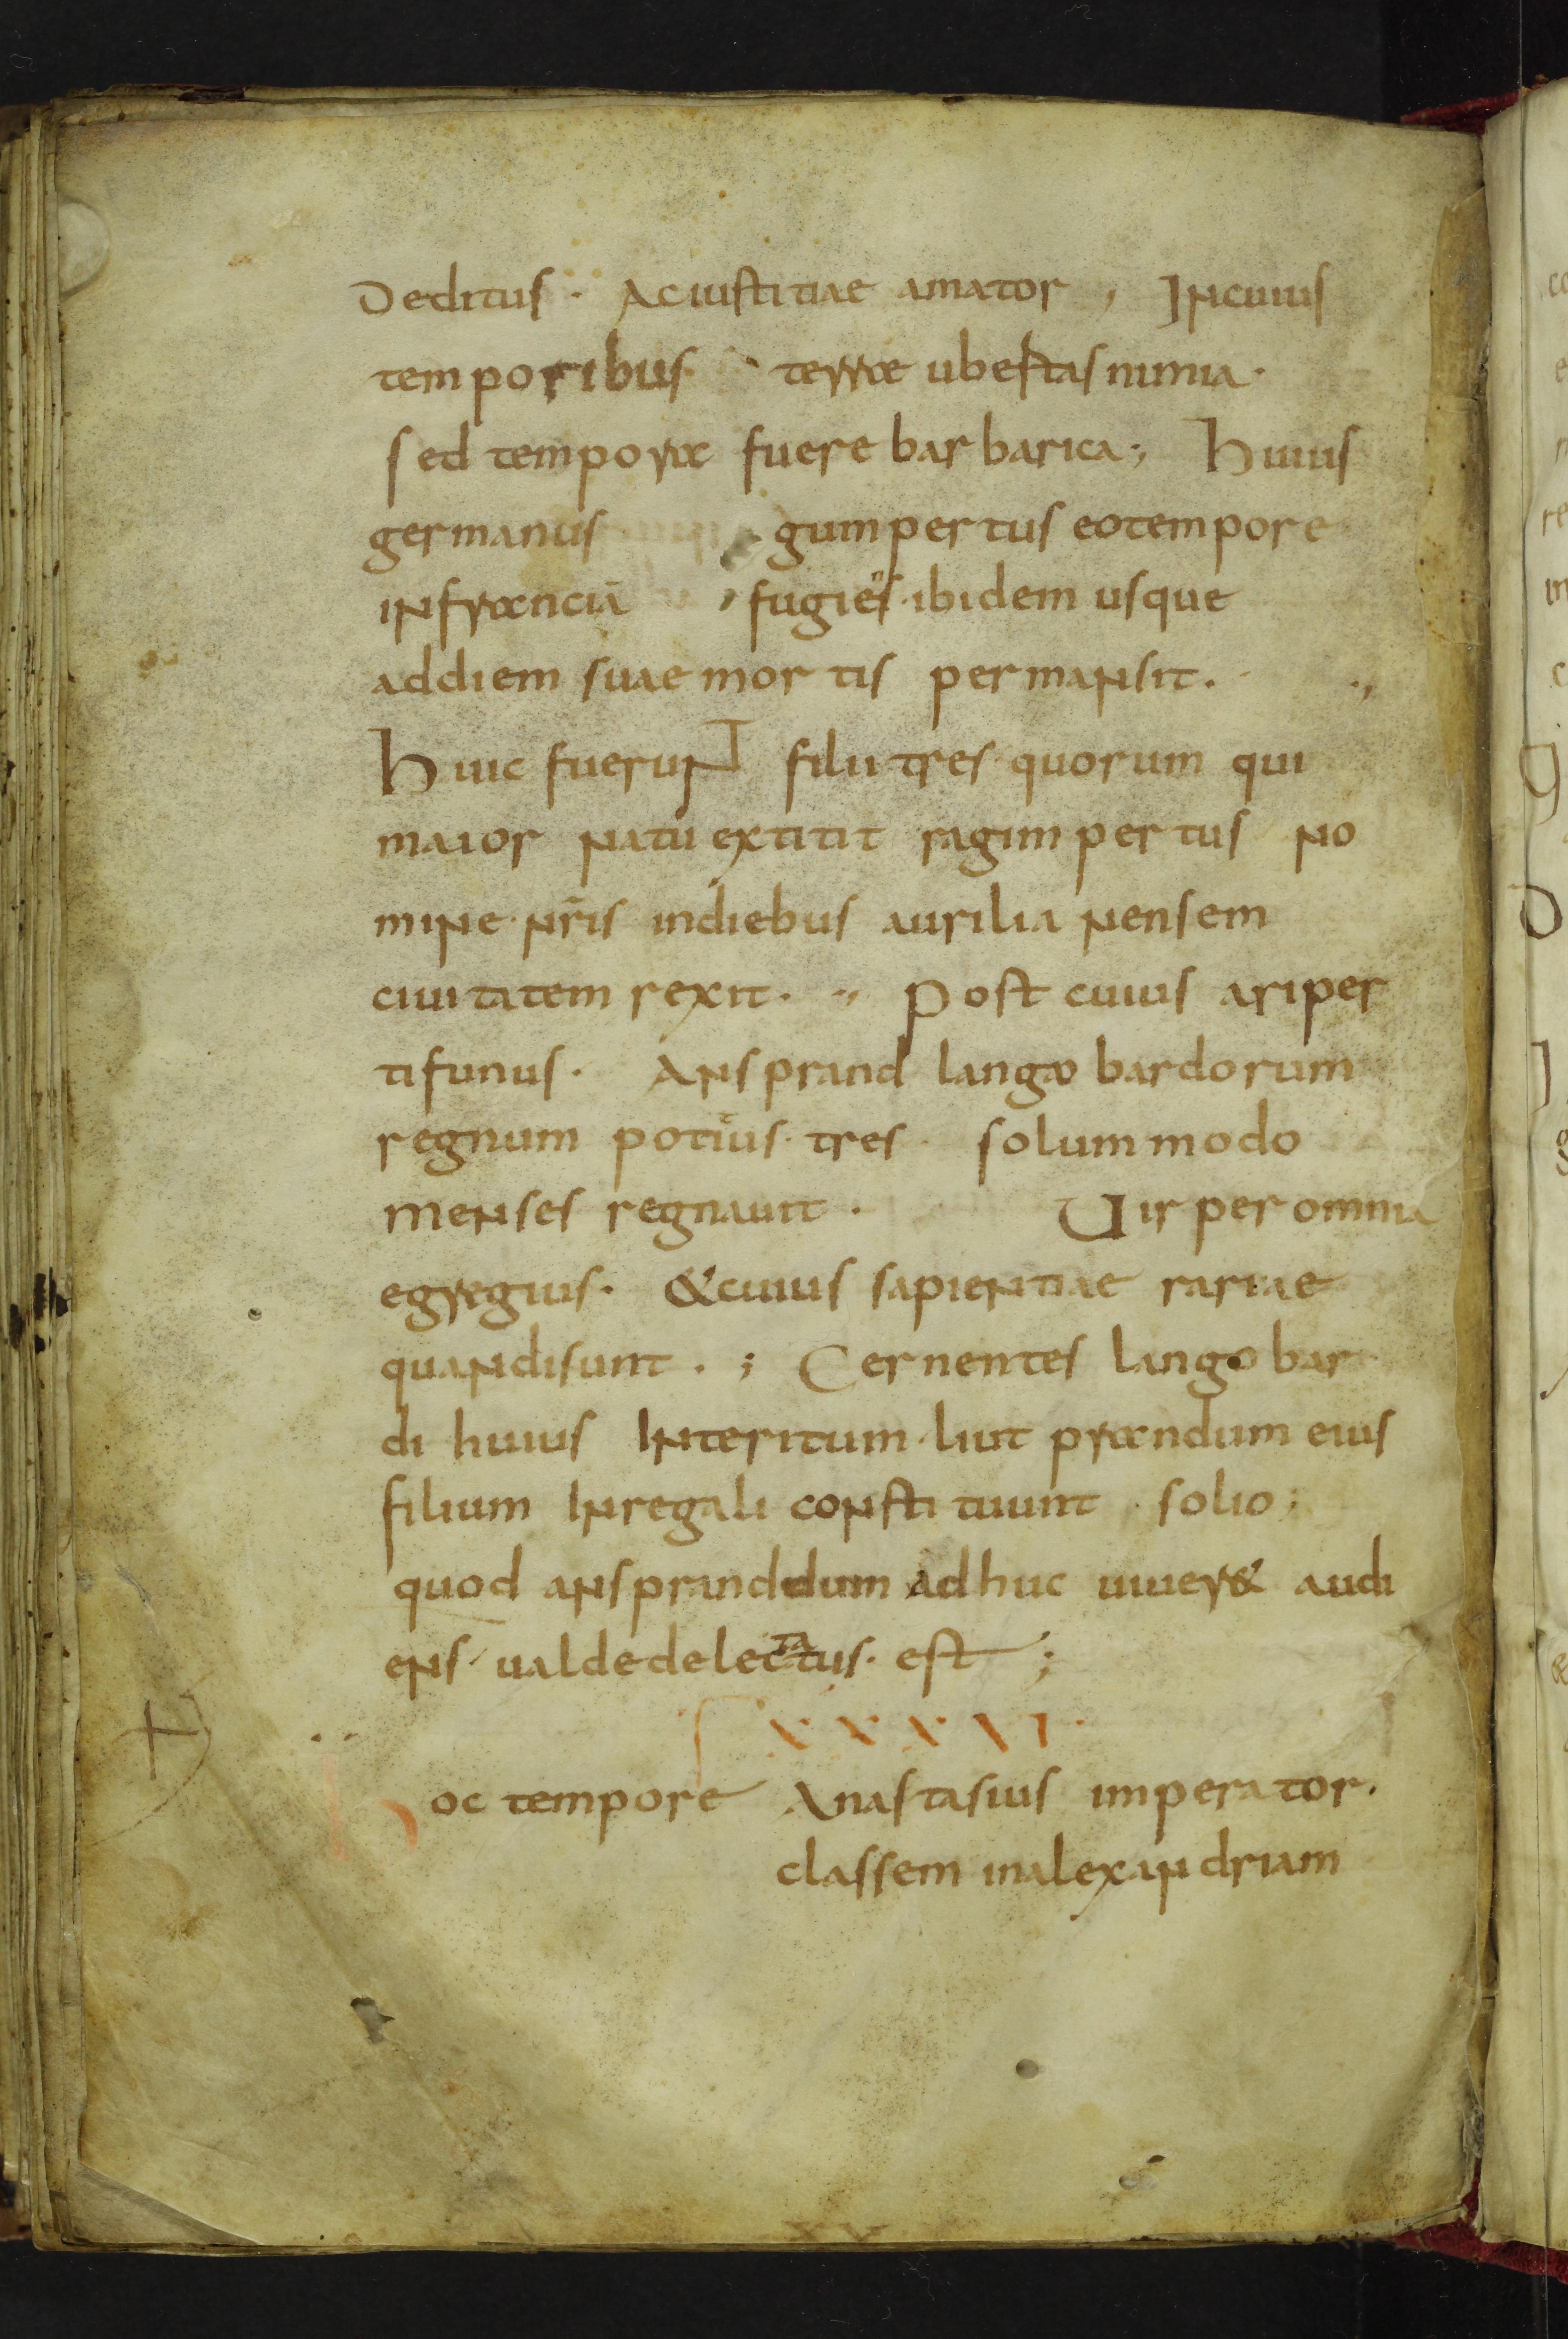 Deditus · Ac iustitiae amator , Incuius
temporibus terrae ubertas nimia ·
sed tempora fuere barbarica ; Huius
germanus gumpertus eotempore
infranciā fugiēs · ibidem usque
addiem suae mortis permansit . ·,
Huic fuerunt filii tres · quorum qui
maior natu extitit ragimpertus no
mine · nr̄is indiebus aurilianensem
ciuitatem rexit . ·, Post cuius ariper
ti funus · Ansprand langobardorum
regnum potitus · tres · solummodo
menses regnauit · Uir per omnia
egregius · & cuius sapientiae rariae
quandi sunt . ; Cernentes langobar
di huius Interitum · liutprandum eius
filium Inregali constituunt · solio ;
quod ansprand dum adhuc uiuer& audi
ens · ualde delectatus · est ;
XXXVI ·
Hoc tempore Anastasius imperator .
classem inalexandriam